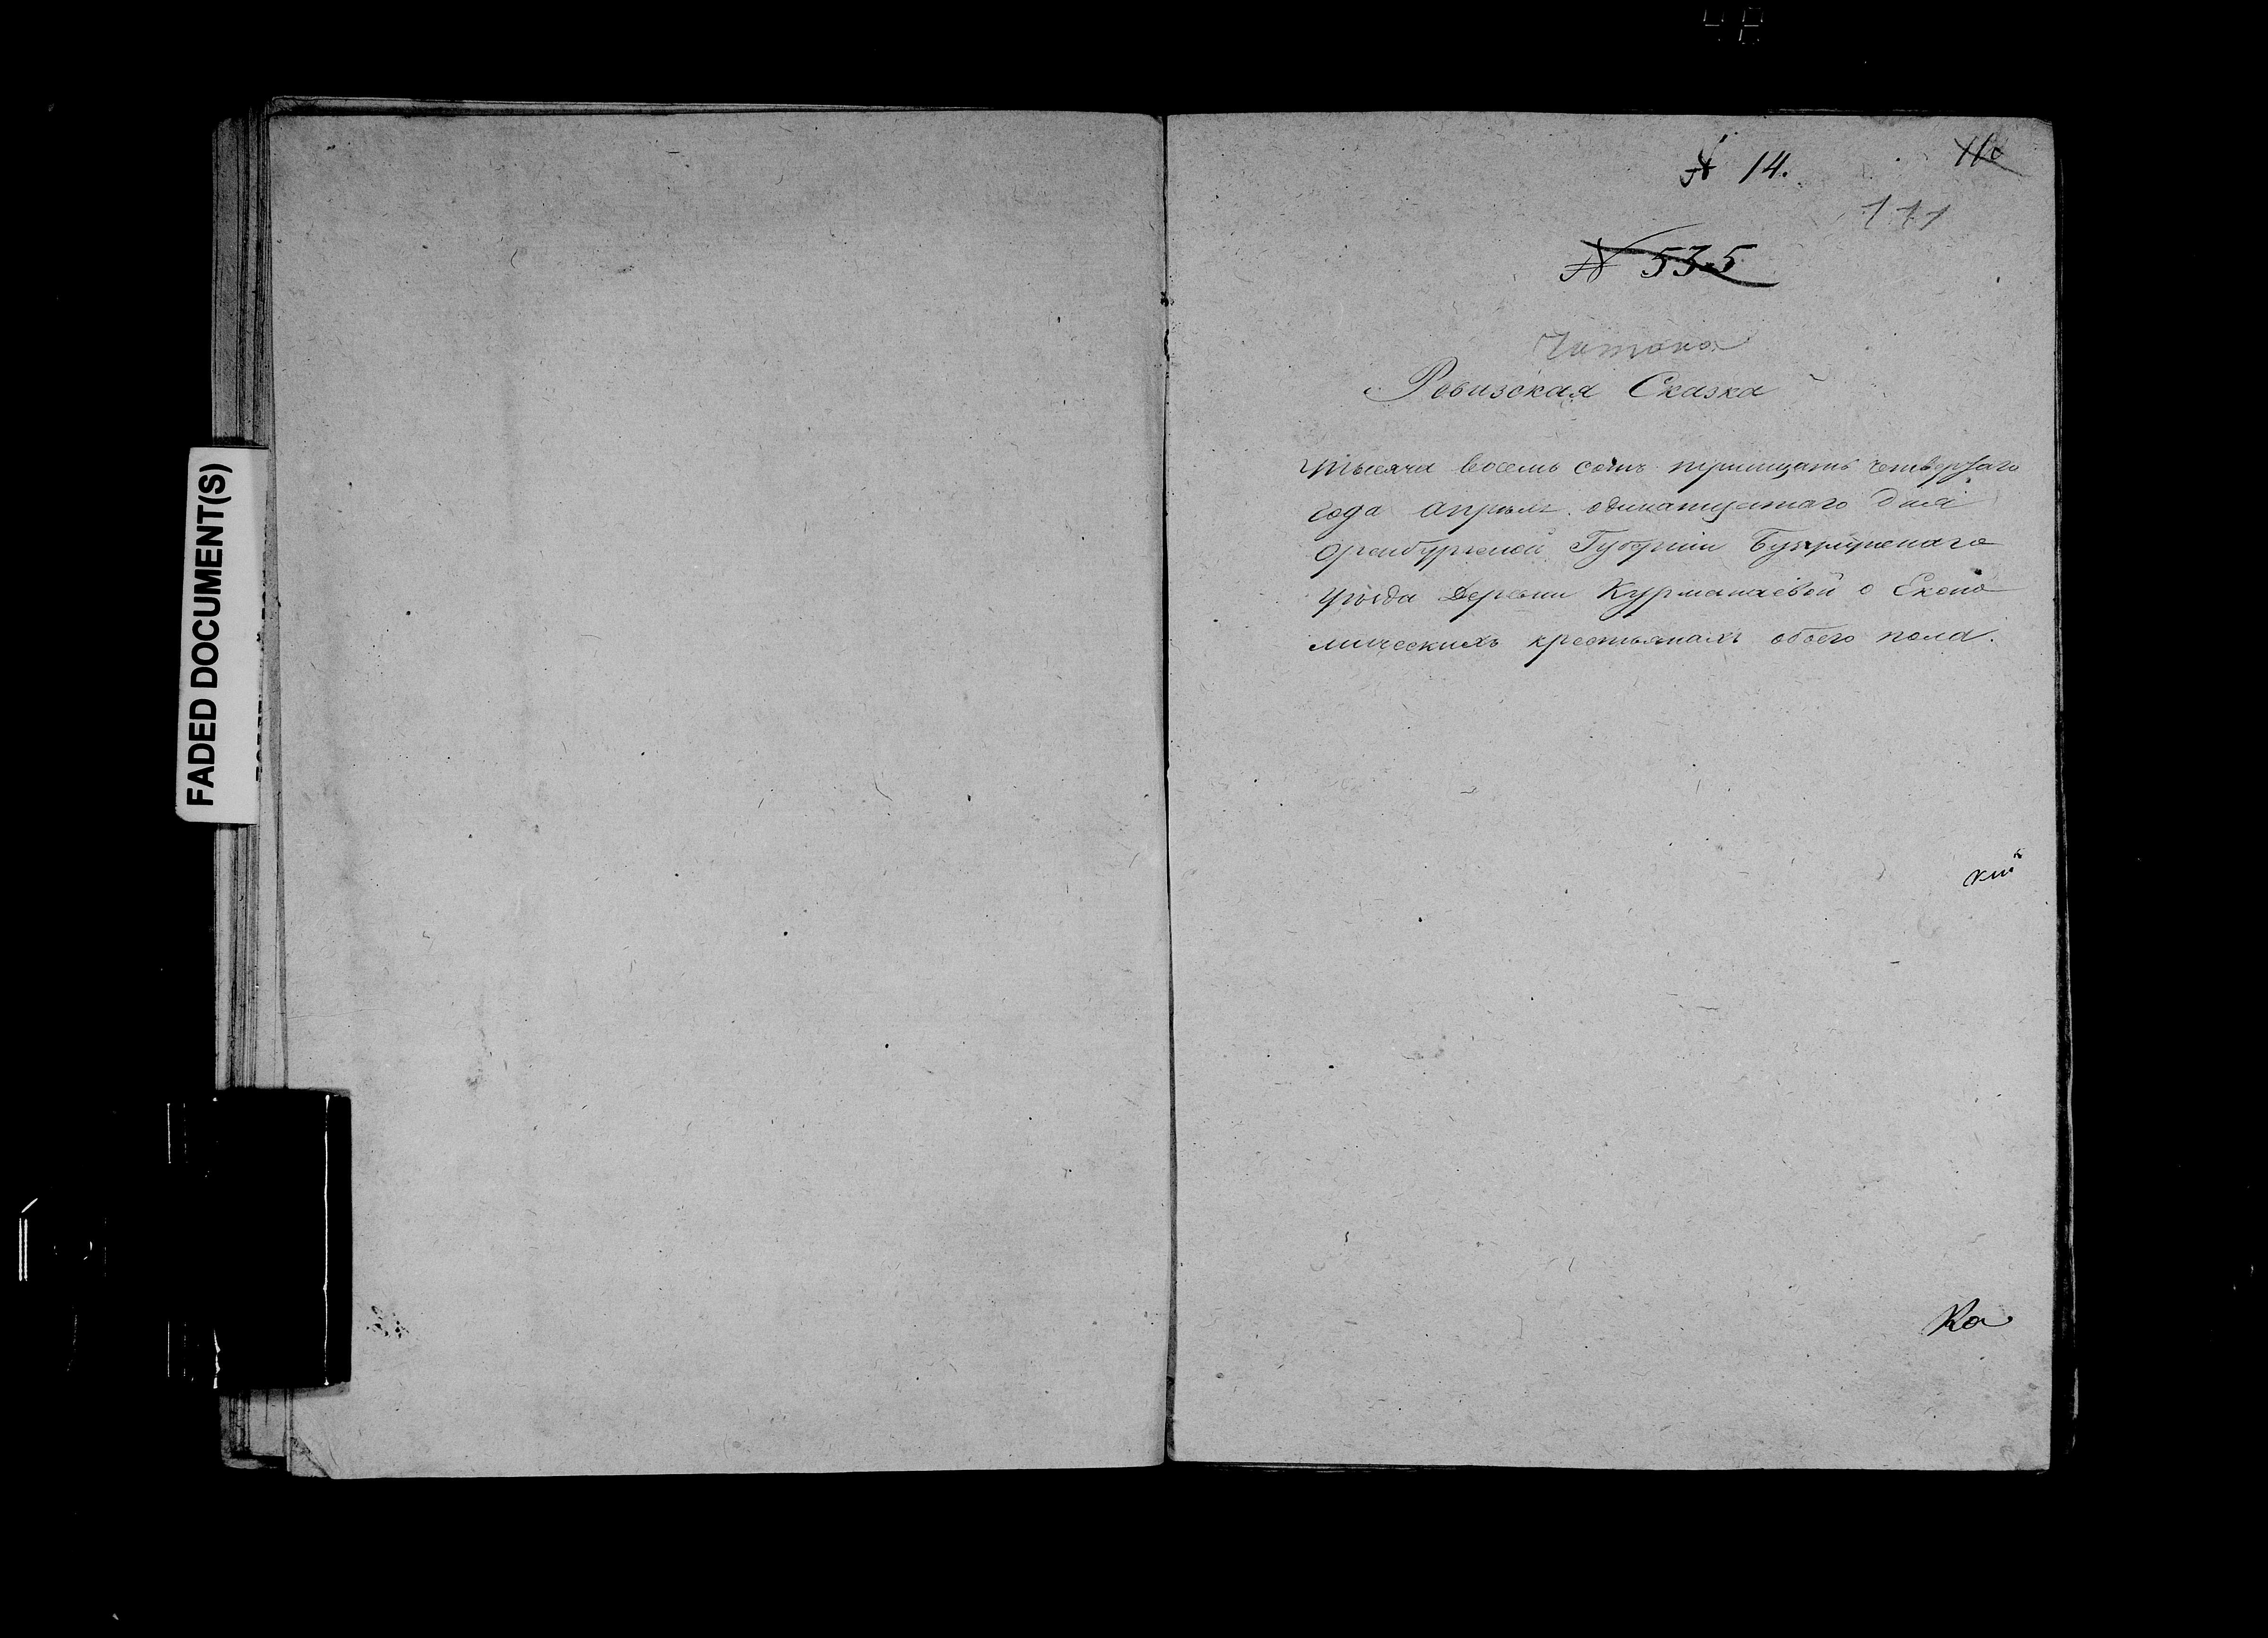 FADED DOCUMENT(S)
№ 14.
110
111
№ 535
Читана
Ревизская Сказка
Тысяча восемь сотъ тритцать четвертаго
года апреля одинатцатаго дня
Оренбургской Губернии Бугурусланскаго
уезда Деревни Курманаевой о Еконо
мическихъ крестьянахъ обоего пола.
кий
Ка